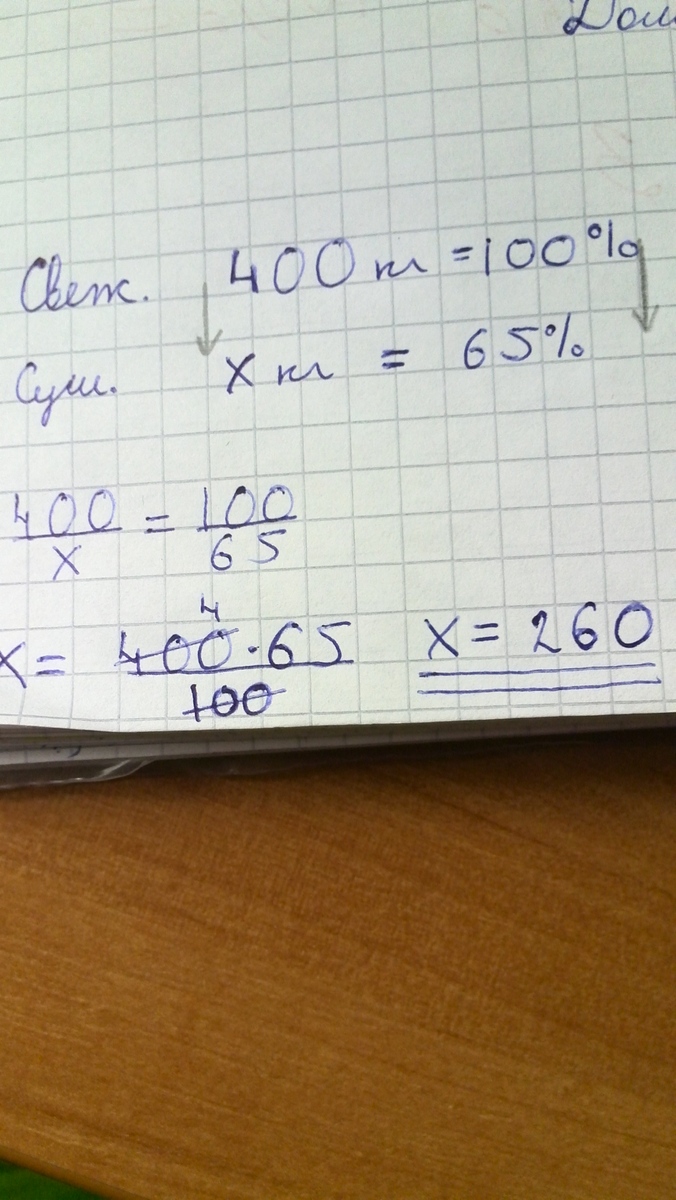 Свеж. 400 кг = 100%
Суш. x кг = 65%
400/x = 100/65
4
x = 400·65/100 x = 260